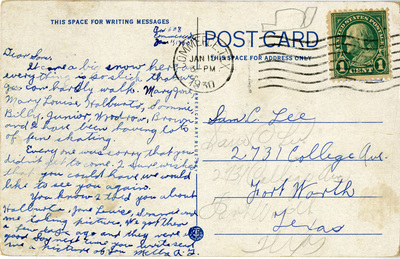 THIS SPACE FOR WRITING MESSAGES
Box 608
Commerce
Dear Sam,
It came a big snow here
everything is so slick that we
you can hardly walk. Mary Jane,
Mary Louise, Halburta, Sammie,
Billy, Junior, Woodrow, Brown
and I have been having lots
of fun skating.
Every one was sorry that you
did not get to come. I sure wished
that you could have we would
like to see you again.
You know I told you about
Halburta, Jane Lewis, and
me taking picture. We got them
a few days ago and they were
good. next time you write send
me a picture of you
POST CARD
THIS SPACE FOR ADDRESS ONLY
COMMERCE
JAN
PM
1930
UNITED STATES POSTAGE
1 CENT 1
Sam C. Lee
2731 College Ave.
Fort Worth
Texas